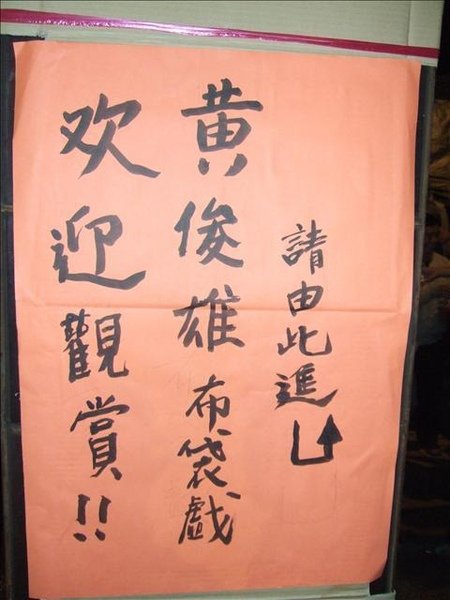 請由此進
黄俊雄布袋戲
欢迎觀賞!!